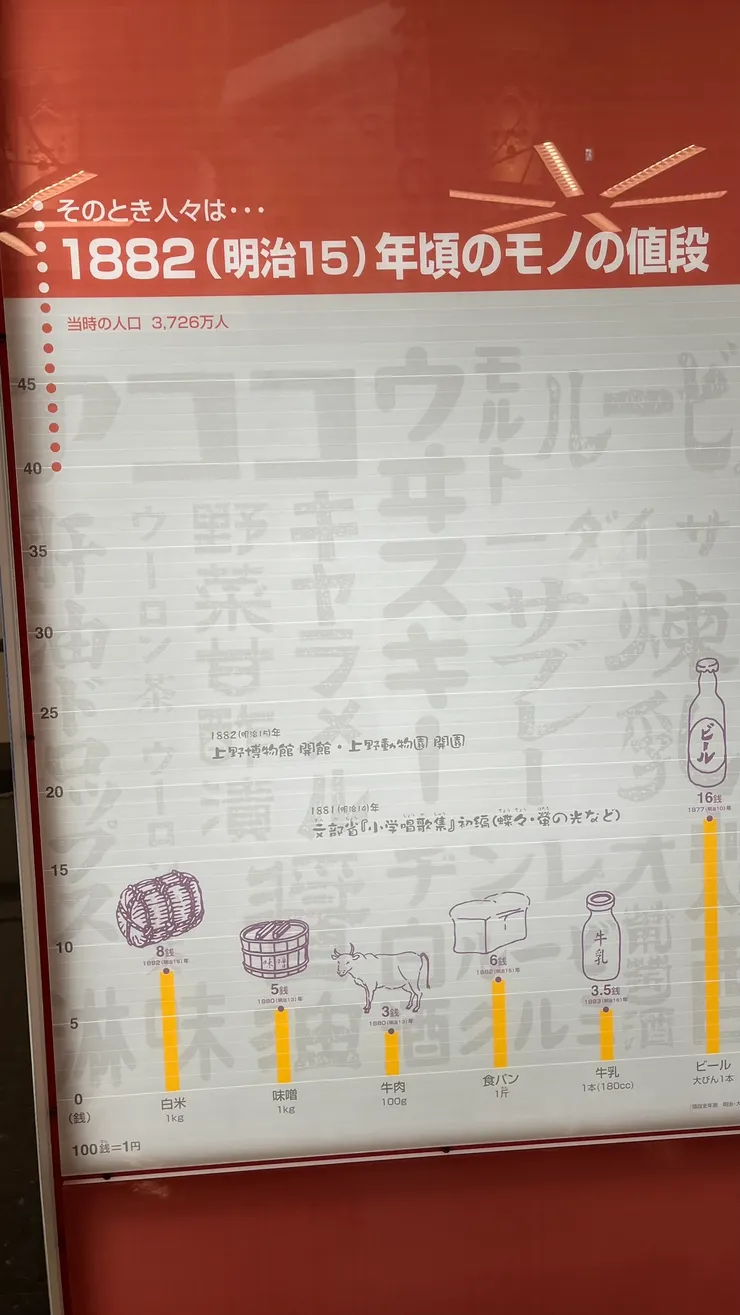 そのとき人々は・・・
1882(明治15)年頃のモノの値段
当時の人口 3,726万人
45
40
35
30
25
20
15
10
5
0
(銭)
100銭=1円
1882(明治15)年
上野博物館 開館・上野動物園 開園
1881(明治14)年
文部省『小学唱歌集』初編(蝶々・螢の光など)
8銭
1882(明治15)年
白米
1kg
5銭
1880(明治13)年
味噌
1kg
3銭
1880(明治13)年
牛肉
100g
6銭
1882(明治15)年
食パン
1斤
牛乳
3.5銭
1883(明治16)年
牛乳
1本(180cc)
ビール
16銭
1877(明治10)年
ビール
大びん1本
ココ
ウヰスキー
モルト
ビール
ウーロン茶
野菜
キャラメル
サブレー
ドロップス
葡萄酒